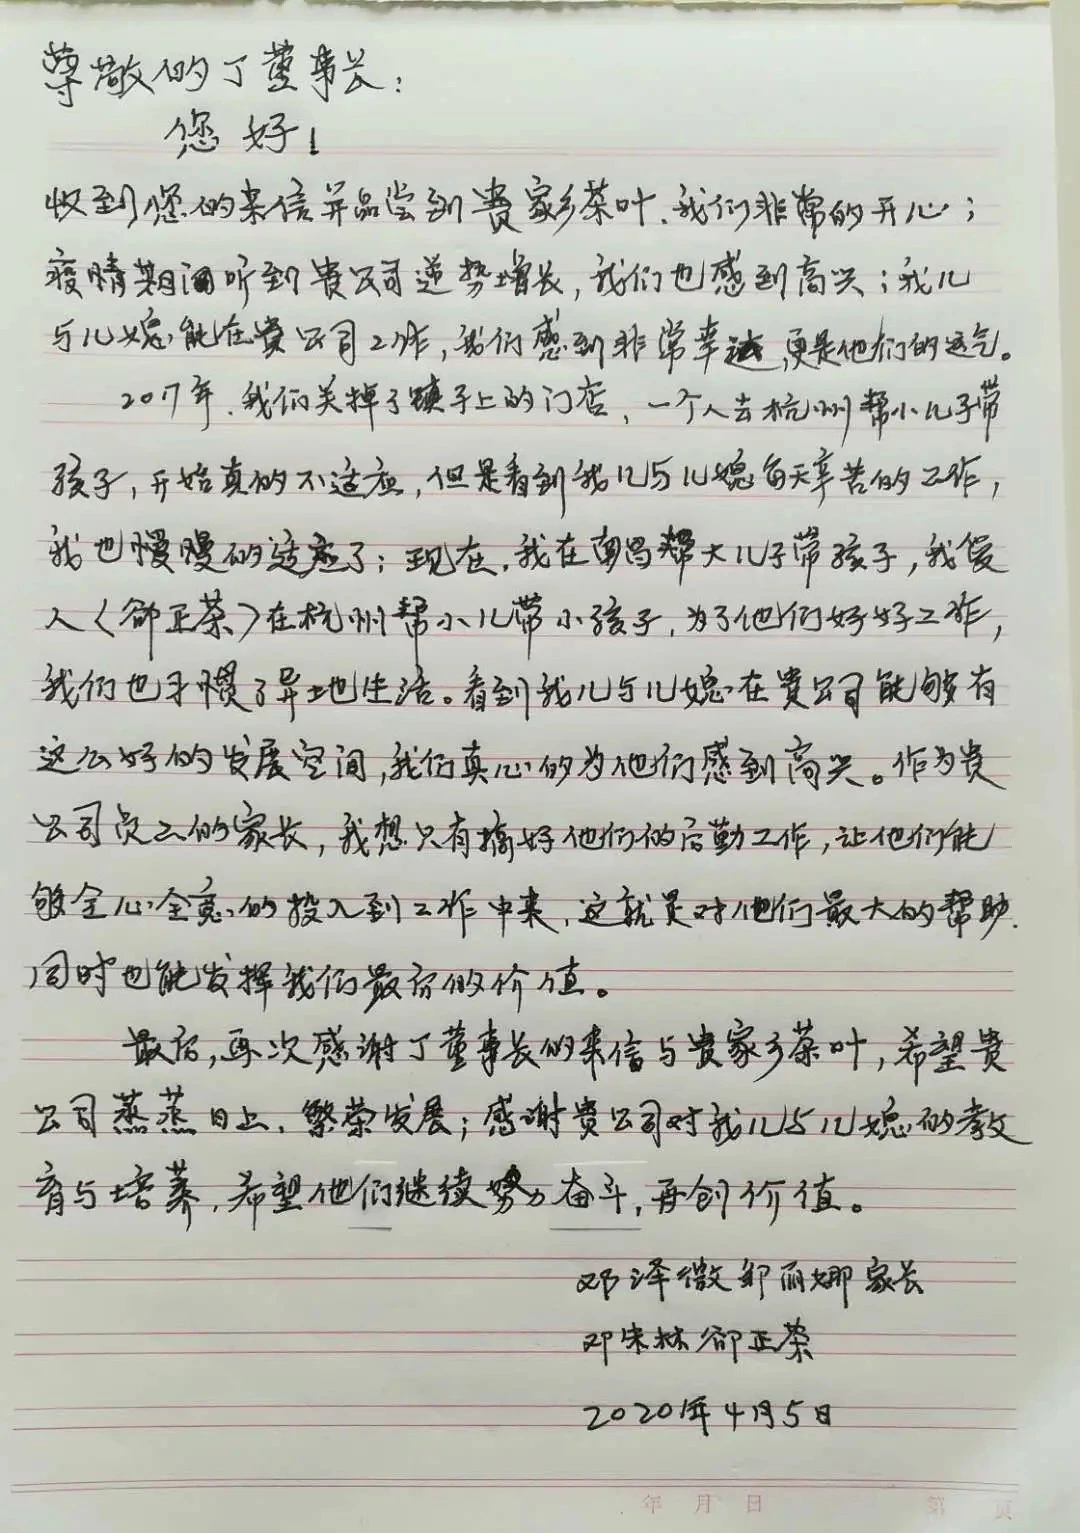 尊敬的丁董事长：
您好！
收到您的来信并品尝到贵家乡茶叶、我们非常的开心；
疫情期间听到贵公司逆势增长，我们也感到高兴；我儿
与儿媳能在贵公司工作，我们感到非常幸运，更是他们的运气。
2017年、我们关掉了镇子上的门店，一个人去杭州帮小儿子带
孩子，开始真的不适应，但是看到我儿与儿媳每天辛苦的工作，
我也慢慢的适应了；现在、我在南昌帮大儿子带孩子，我爱
人〈邻正荣〉在杭州帮小儿带小孩子，为了他们好好工作，
我们也习惯了异地生活。看到我儿与儿媳在贵公司能够有
这么好的发展空间，我们真心的为他们感到高兴。作为贵
公司员工的家长，我想只有搞好他们的后勤工作，让他们能
够全心全意的投入到工作中来，这就是对他们最大的帮助.
同时也能发挥我们最后的价值。
最后，再次感谢丁董事长的来信与贵家乡茶叶，希望贵
公司蒸蒸日上、繁荣发展；感谢贵公司对我儿与儿媳的教
育与培养，希望他们继续努力奋斗，再创价值。
邓泽微邹丽娜家长
邓朱林 正荣
2020年4月5日
年 月 日 第 页